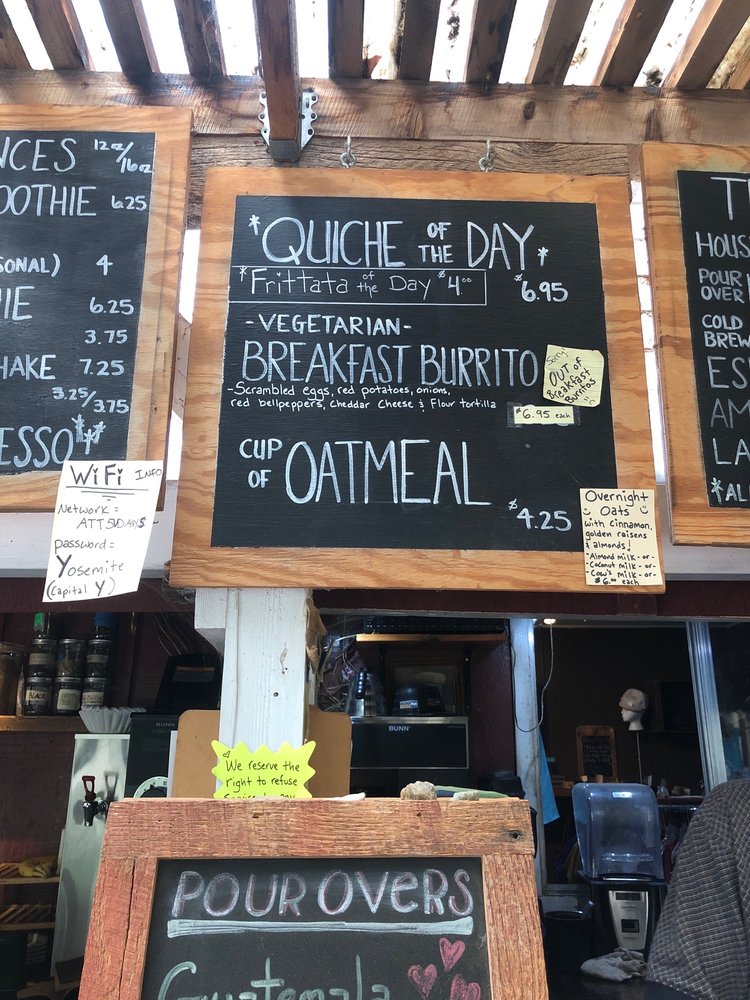 12oz/16oz
6.25
4
6.25
3.75
7.25
3.25/3.75
WiFi INFO
Network =
password =
Yosemite
(capital Y)
*QUICHE OF THE DAY*
$6.95
*Frittata of the Day $4.00
-VEGETARIAN-
BREAKFAST BURRITO
-Scrambled eggs, red potatoes, onions,
red bellpeppers, Cheddar Cheese & Flour tortilla
Sorry!
OUT of
Breakfast
Burritos
$6.95 each
CUP OF OATMEAL
$4.25
Overnight
Oats
with cinnamon,
golden raisens
& almonds!
-Almond milk -or-
-Coconut milk -or-
-Cow's milk -or-
$6.00 each
POUR
OVER
COLD
BREW
BUNN
BUNN
We reserve the
right to refuse
POUR OVERS
Guatemala